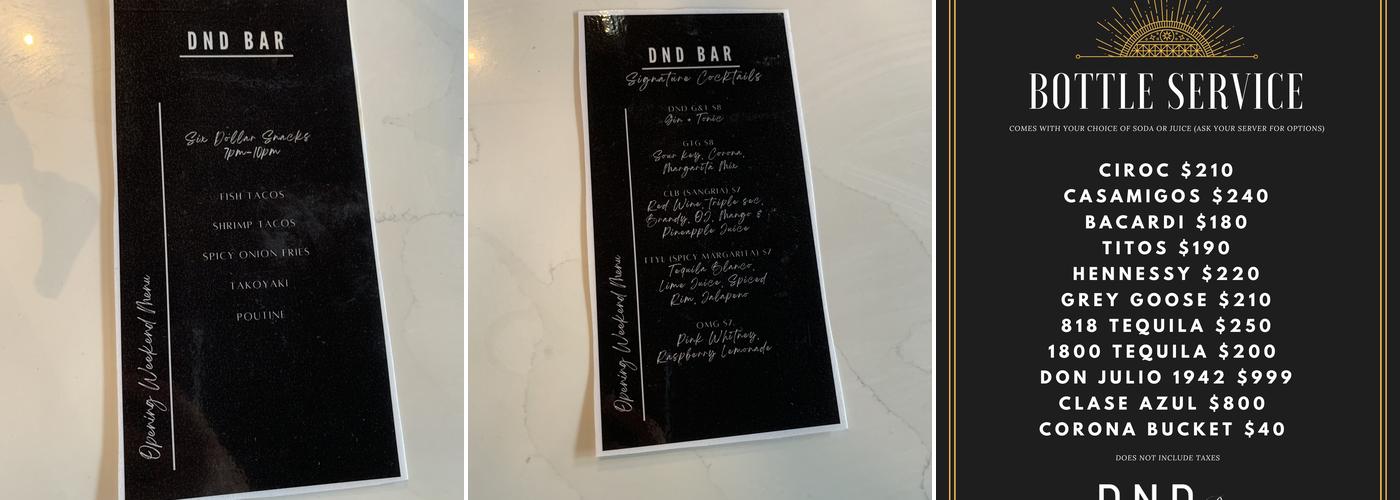 DND BAR
Six Dollar Snacks
7pm-10pm
FISH TACOS
SHRIMP TACOS
SPICY ONION FRIES
TAKOYAKI
POUTINE
Opening Weekend Menu
DND BAR
Signature Cocktails
DND G&T $8
Gin + Tonic
GTG $8
Sour Key, Corona,
Margarita Mix
CLB (SANGRIA) $7
Red Wine, triple sec,
Brandy, OJ, Mango &
Pineapple Juice
TTYL (SPICY MARGARITA) $7
Tequila Blanco,
Lime Juice, Spiced
Rim, Jalapeno
OMG $7
Pink Whitney,
Raspberry Lemonade
Opening Weekend Menu
BOTTLE SERVICE
COMES WITH YOUR CHOICE OF SODA OR JUICE (ASK YOUR SERVER FOR OPTIONS)
CIROC $210
CASAMIGOS $240
BACARDI $180
TITOS $190
HENNESSY $220
GREY GOOSE $210
818 TEQUILA $250
1800 TEQUILA $200
DON JULIO 1942 $999
CLASE AZUL $800
CORONA BUCKET $40
DOES NOT INCLUDE TAXES
DND